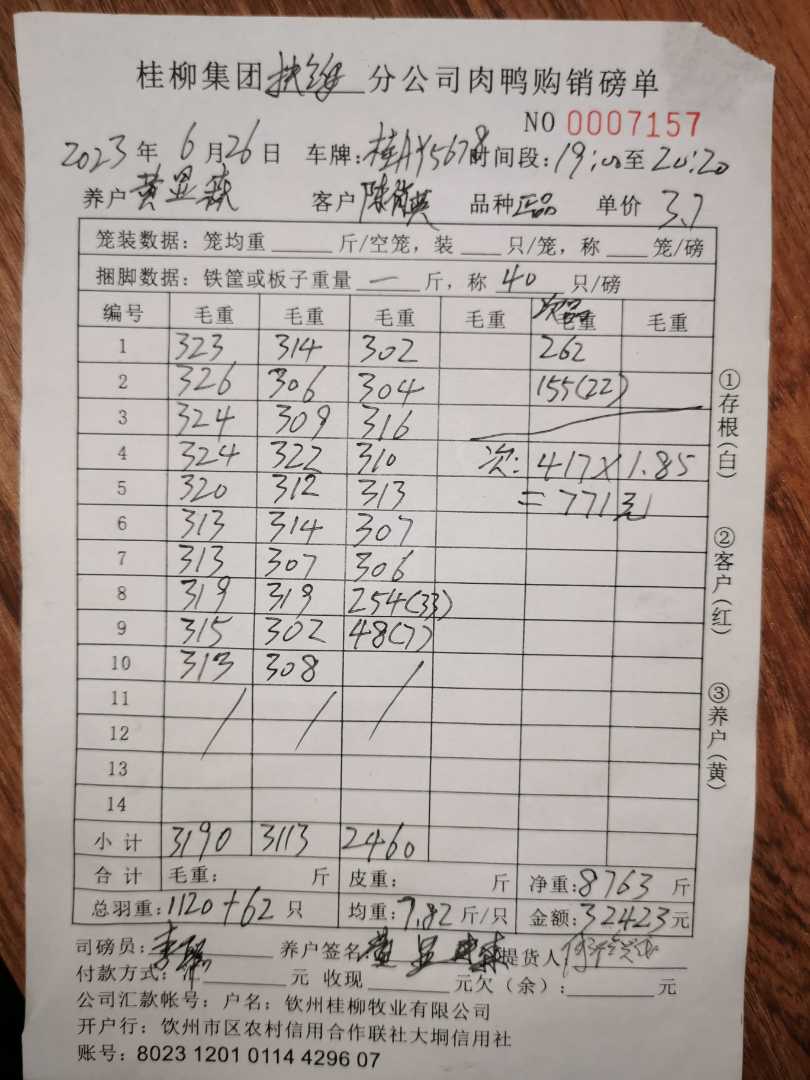 桂柳集团扶绥分公司肉鸭购销磅单
NO 0007157
2023年 6月26日 车牌:桂AY5678 时间段:19:00至20:20
养户 黄显森 客户 陈 品种 正品 单价 3.7
笼装数据:笼均重____斤/空笼,装___只/笼,称___笼/磅
捆脚数据:铁筐或板子重量 一 斤,称 40 只/磅
编号 毛重 毛重 毛重 毛重 次品毛重 毛重
1 323 314 302 262
2 326 306 304 155(22)
3 324 309 316
4 324 322 310 次:417×1.85
5 320 312 313 =771元
6 313 314 307
7 313 307 306
8 319 319 254(33)
9 315 302 48(7)
10 313 308
11
12
13
14
小计 3190 3113 2460
合计 毛重: 斤 皮重: 斤 净重:8763斤
总羽重:1120+62只 均重:7.82斤/只 金额:32423元
司磅员:李 养户签名 黄显森 提货人
付款方式:____元 收现____元欠(余):____元
公司汇款帐号:户名:钦州桂柳牧业有限公司
开户行:饮州市区农村信用合作联社大垌信用社
账号:8023 1201 0114 4296 07
①存根(白)
②客户(红)
③养户(黄)